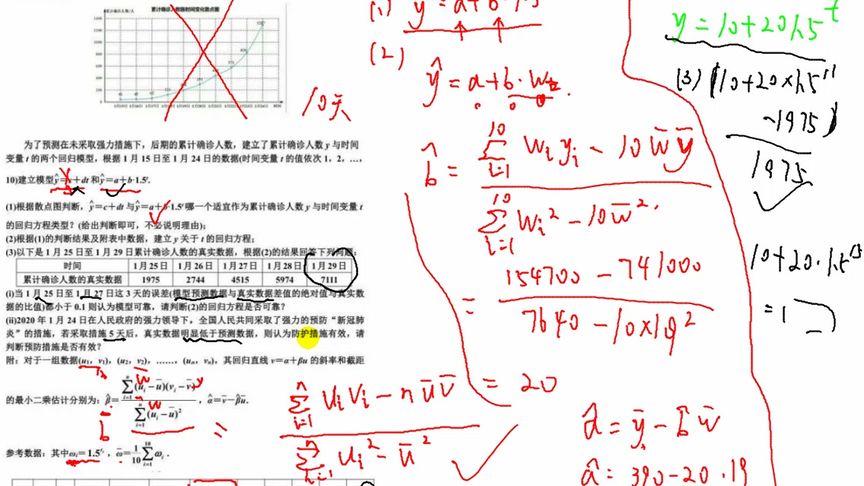 累计确诊人数随时间变化散点图
为了预测在未采取强力措施下，后期的累计确诊人数，建立了累计确诊人数 y 与时间
变量 t 的两个回归模型，根据 1 月 15 日至 1 月 24 日的数据(时间变量 t 的值依次 1，2，…，
10)建立模型ŷ=c+dt 和ŷ=a+b·1.5ᵗ.
(1)根据散点图判断，ŷ=c+dt 与ŷ=a+b·1.5ᵗ哪一个适宜作为累计确诊人数 y 与时间变量 t
的回归方程类型？(给出判断即可，不必说明理由)；
(2)根据(1)的判断结果及附表中数据，建立 y 关于 t 的回归方程；
(3)以下是 1 月 25 日至 1 月 29 日累计确诊人数的真实数据，根据(2)的结果回答下列问题：
时间 1月25日 1月26日 1月27日 1月28日 1月29日
累计确诊人数的真实数据 1975 2744 4515 5974 7111
(i)当 1 月 25 日至 1 月 27 日这 3 天的误差(模型预测数据与真实数据差值的绝对值与真实数
据的比值)都小于 0.1 则认为模型可靠，请判断(2)的回归方程是否可靠？
(ii)2020 年 1 月 24 日在人民政府的强力领导下，全国人民共同采取了强力的预防“新冠肺
炎”的措施，若采取措施 5 天后，真实数据明显低于预测数据，则认为防护措施有效，请
判断预防措施是否有效？
附：对于一组数据(u₁，v₁)，(u₂，v₂)，……，(uₙ，vₙ)，其回归直线 v=α+βu 的斜率和截距
的最小二乘估计分别为：β̂=Σⁿᵢ₌₁(uᵢ-ū)(vᵢ-v̄)/Σⁿᵢ₌₁(uᵢ-ū)²，α̂=v̄-β̂ū.
参考数据：其中ωᵢ=1.5ᵗⁱ，ω̄=1/10 Σ¹⁰ᵢ₌₁ωᵢ.
10天
w̄
y
w̄
b
= (Σⁿᵢ₌₁ UᵢVᵢ - nūv̄)/(Σⁿᵢ₌₁ Uᵢ² - ū²)
(1)
(2)
ŷ=a+b·w
b̂ = (Σ¹⁰ᵢ₌₁ Wᵢyᵢ - 10w̄ȳ)/(Σ¹⁰ᵢ₌₁ Wᵢ² - 10w̄²)
= (154700-741000)/(7640-10×19²)
= 20
â=ȳ-b̂w̄
â=390-20·19
y=10+20·1.5ᵗ
(3) |10+20×1.5¹¹
-1975|
1975
10+20·1.5¹³
=1